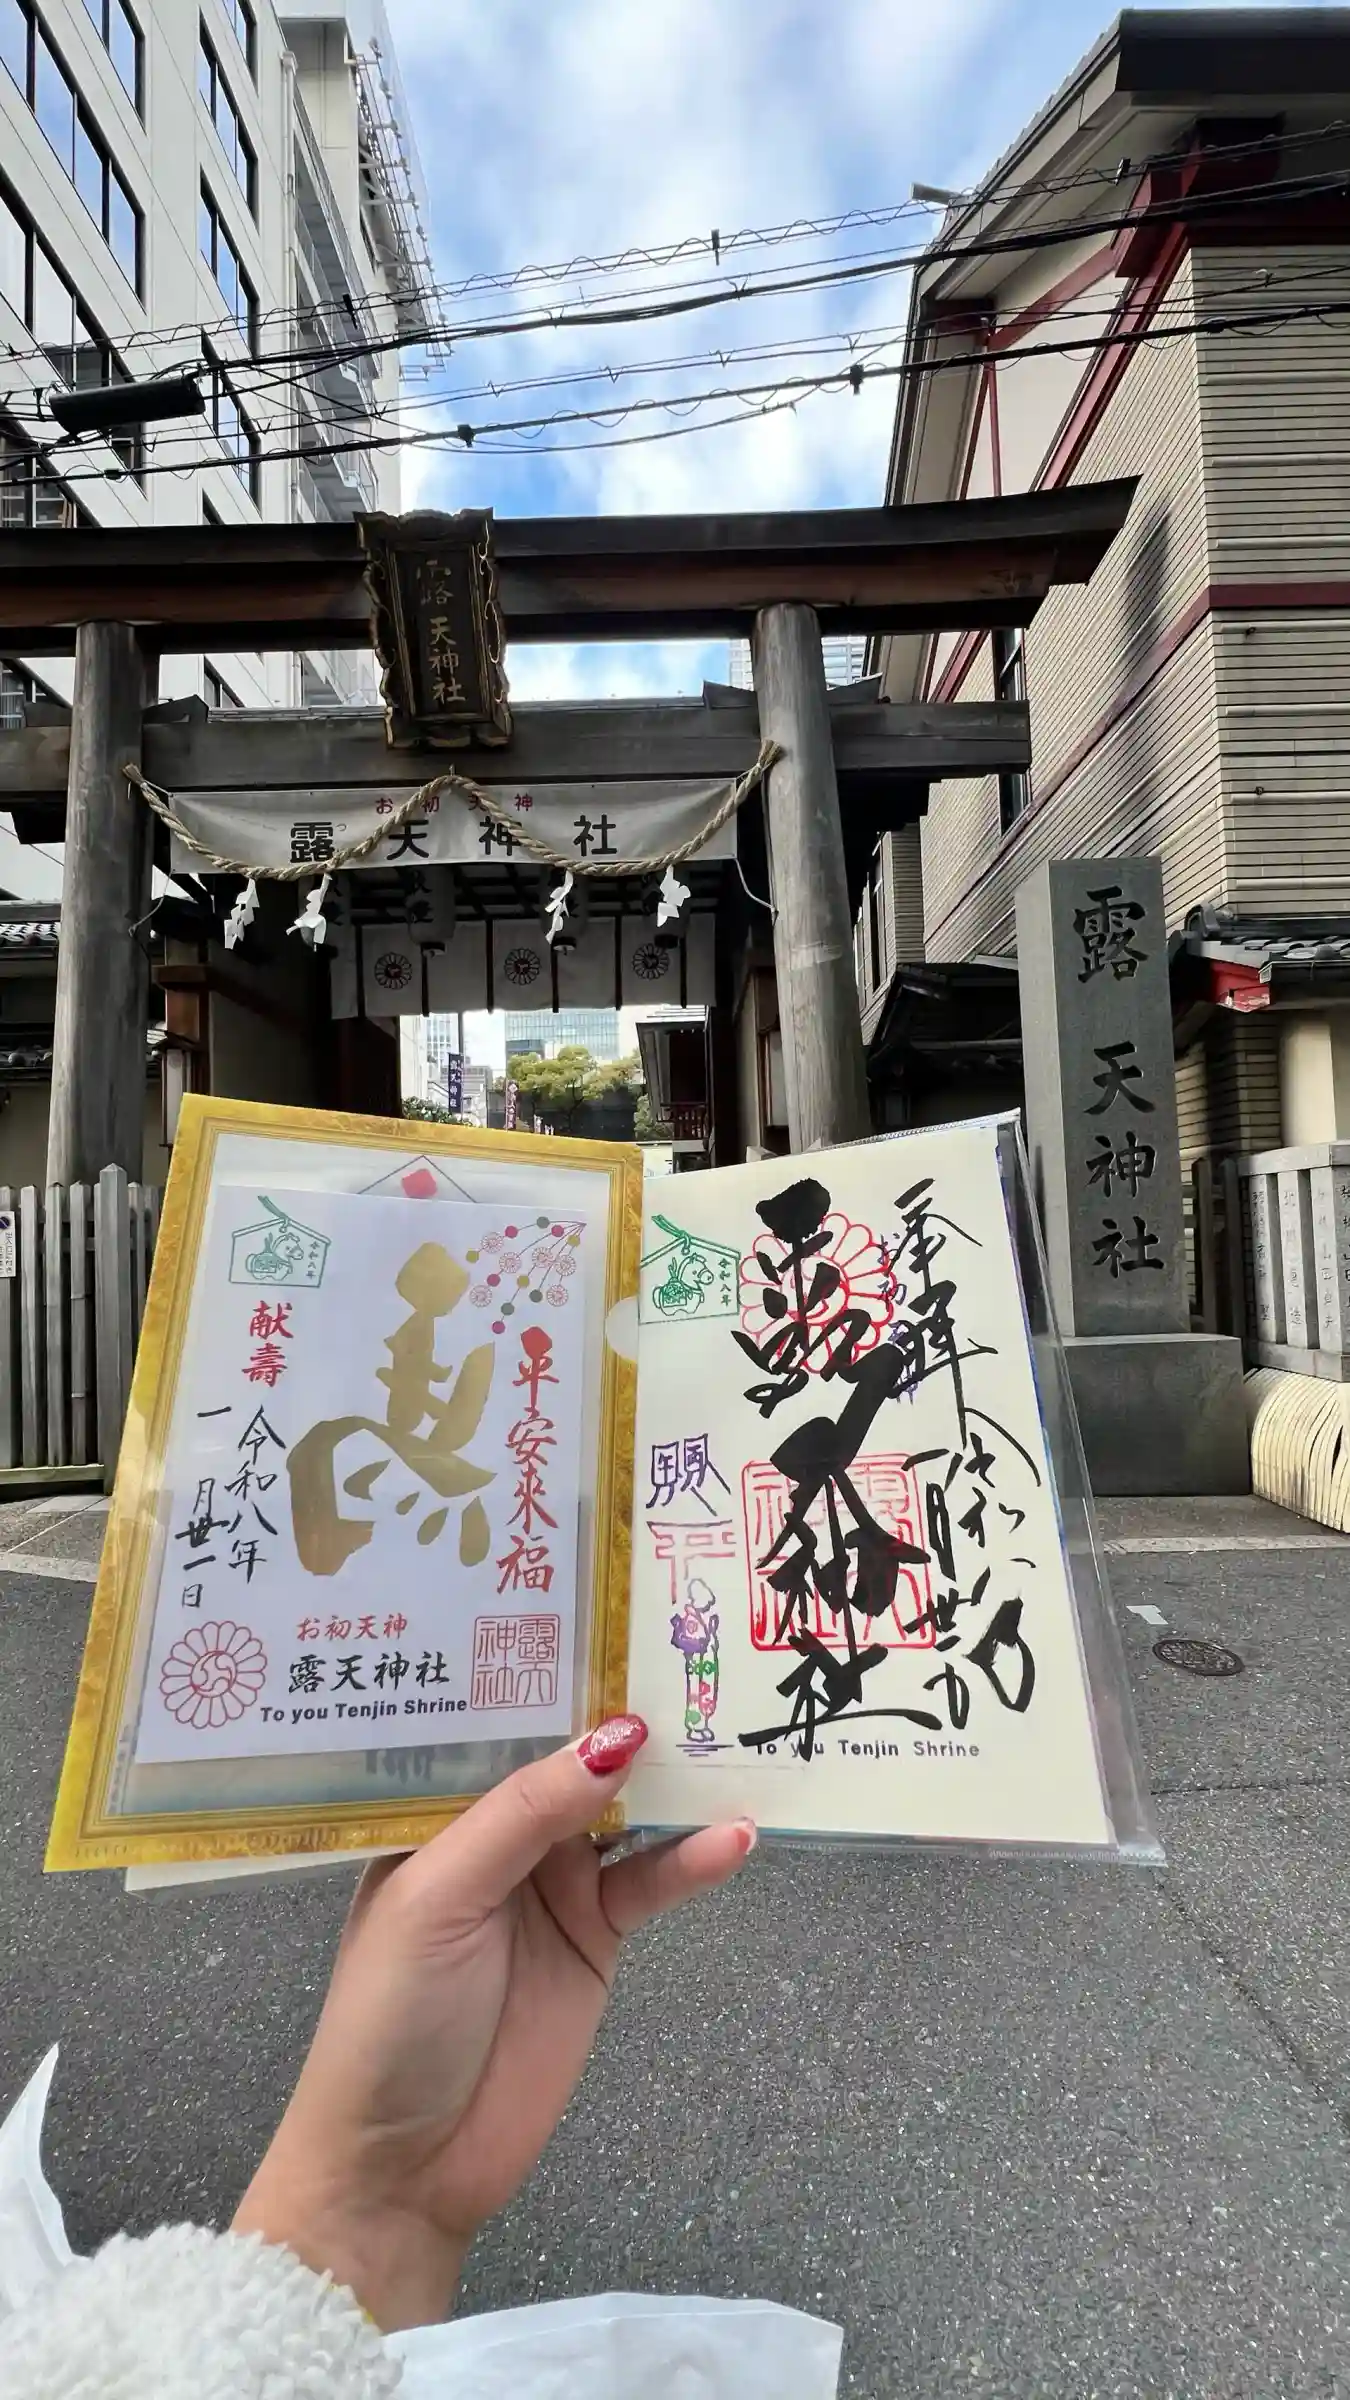 露天神社
お初天神
露天神社
露天神社
令和八年
献壽
平安来福
令和八年
一月丗一日
お初天神
露天神社
To you Tenjin Shrine
露天神社
令和八年
奉拝
お初天神
令和八
一月丗一日
露天神社
露天神社
To you Tenjin Shrine